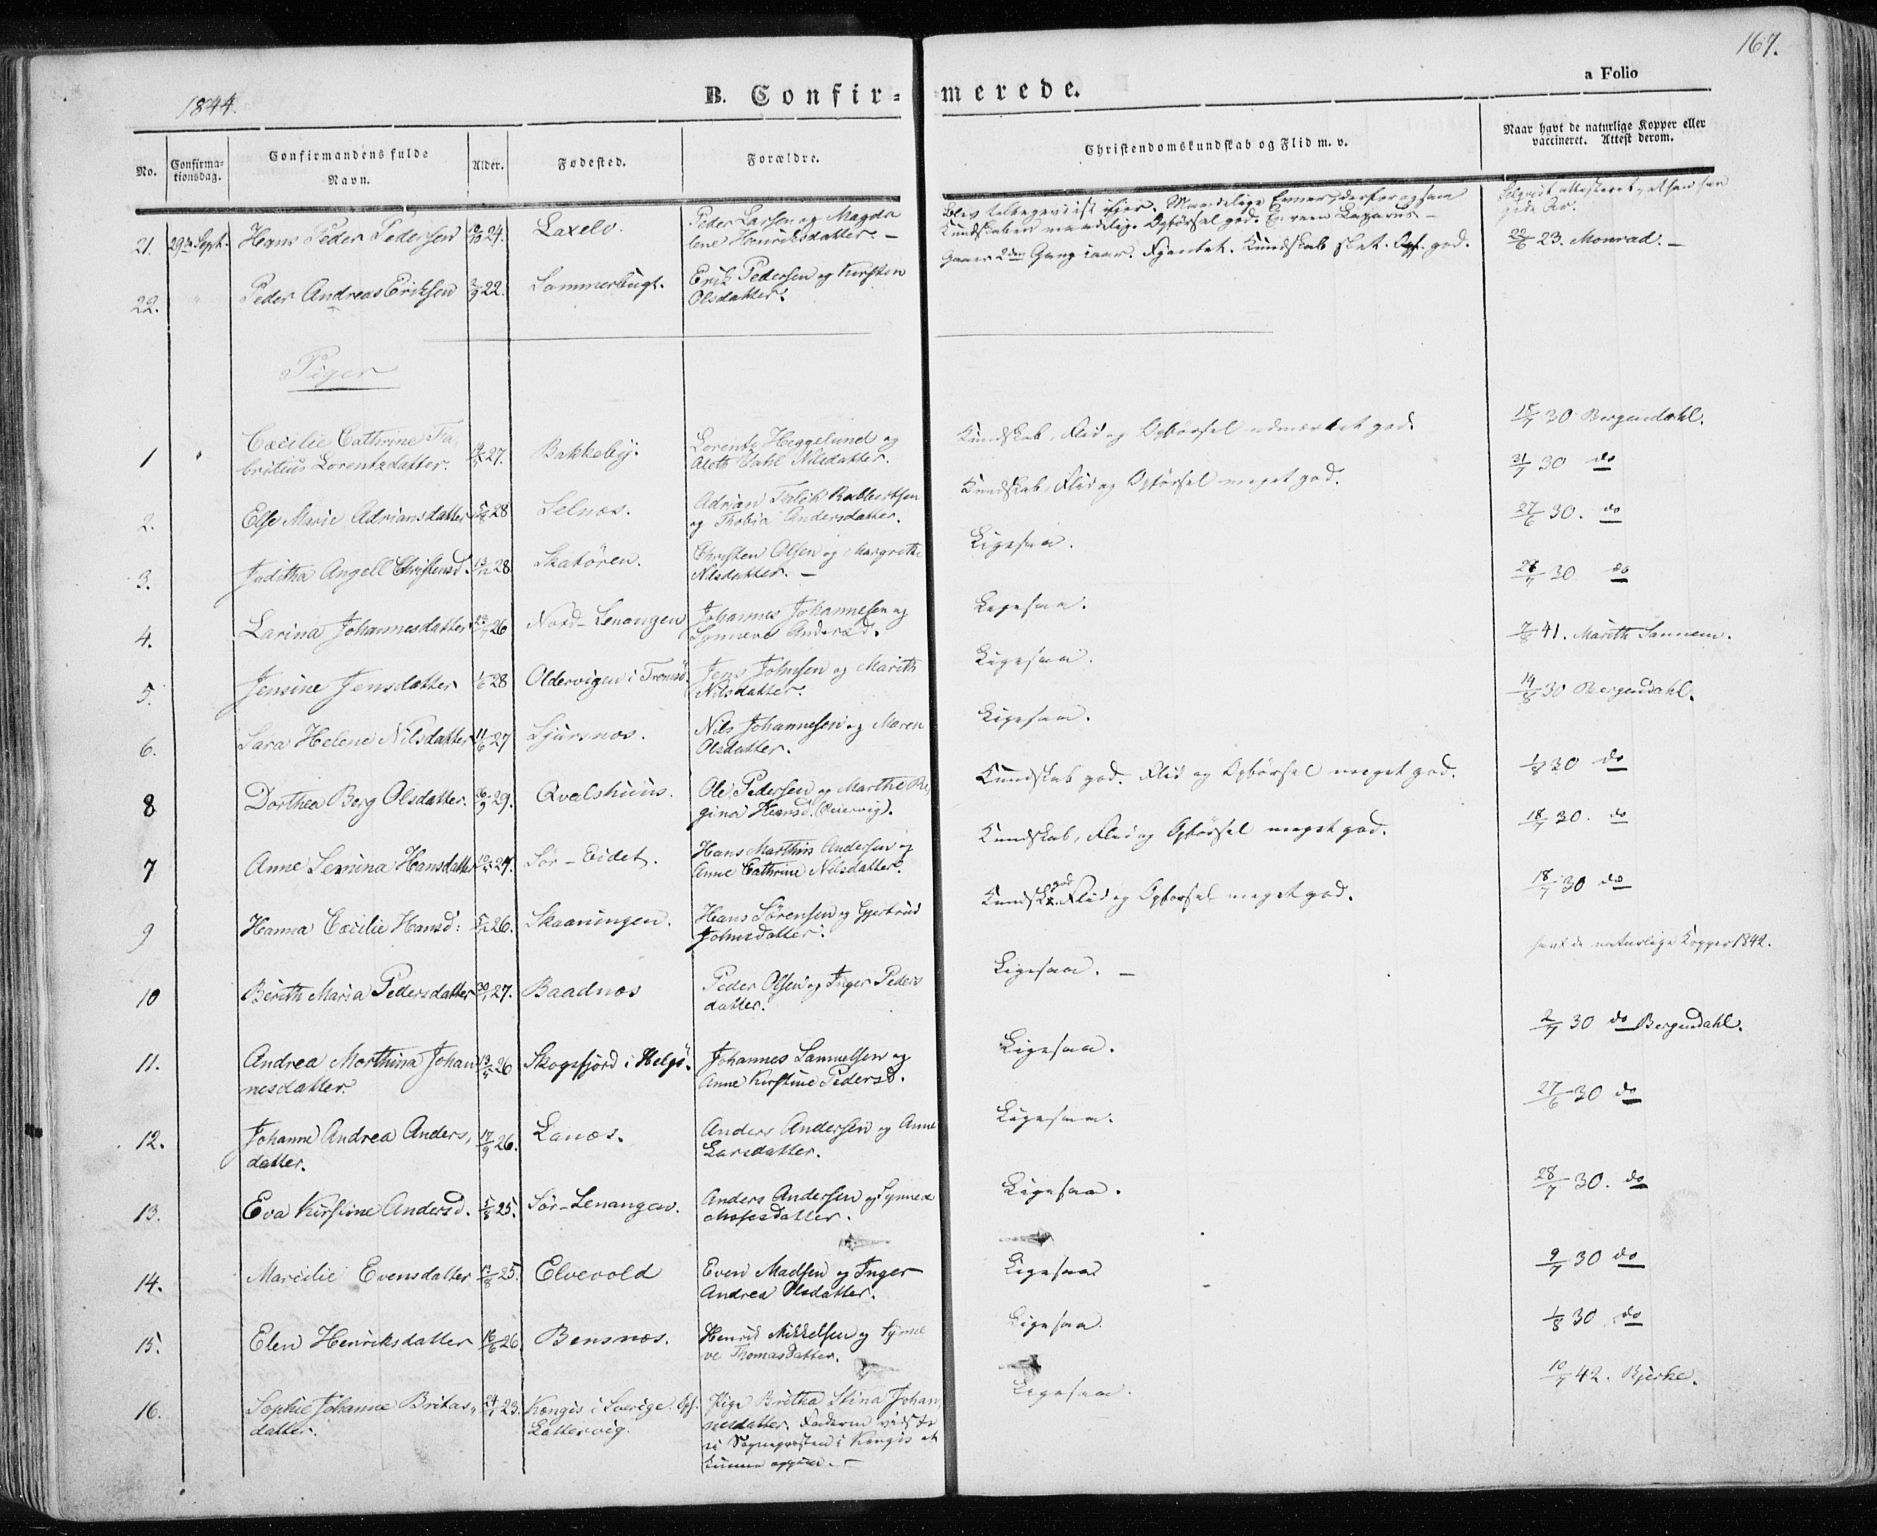 167.
a Folio
1844.
B. Confir= merede.
No.
Confirma-
tionsdag.
Confirmandens fulde
Navn.
Alder.
Fødested.
Forældre.
Christendomskundskab og Flid m. v.
Naar havt de naturlige Kopper eller
vaccineret. Attest derom.
21. 29de Sept. Hans Peder Pedersen 24. Laxelv Peder Larsen og Magda
lene Henriksdatter. —
22. Peder Andreas Eriksen 22. Sommerbugt. Erik Pedersen og Kirstin
Olsdatter. Gaaer 2den Gang iaar. Kundskab slet. god. 22/6 23. Monrad. —
Piger
1 Cæcilie Cathrine Fa,
britius Lorentzdatter. 27. Bakkeby. Lorentz Heggelund og
Dahl Nilsdatter. Kundskab, Flid og Opførsel udmærket god. 15/7 30 Bergendahl.
2. Else Marie Adriansdatter 28 Selnæs. Adrian
og Thobia Andersdatter. Kundskab, Flid og Opførsel meget god. 31/7 30 do
3. Juditha Angell Christensd. 28. Skatören. Christen Olsen og Margrethe
Nilsdatter. — Ligesaa. 27/6 30. do
4. Larina Johannesdatter 26 Nord-Lenangen Johannes Johannesen og
Andersd. Ligesaa. 30 do
5. Jensine Jensdatter 1/6 28 Oldervigen i Tromsö. Jens Johnsen og Marith
Nilsdatter. Ligesaa. 7/8 41. Marith Sannem.
6. Sara Helene Nilsdatter 11/6 27 Sjursnæs. Nils Johannesen og Maren
Olsdatter. Ligesaa. 14/8 30 Bergendahl.
8 Dorthea Berg Olsdatter. 29. Qvalshuus. Ole Pedersen og Marthe Re,
gina Hansd. Kundskab god. Flid og Opførsel meget god. 1/8 30 do
7 Anne Hansdatter 27. Sör-Eidet. Hans Marthin Andersen og
Anne Cathrine Nilsdatter. Kundskab, Flid og Opførsel meget god. 18/7 30. do
9 Hanna Cæcilie Hansd: 26. Skaaningen. Hans Sörensen og Gjertrud
Johnsdatter. Kundsk. god Flid og Opførsel meget god. 18/7 30 do
10 Berith Maria Pedersdatter 27. Baadnæs Peder Olsen og Inger Peders
datter. Ligesaa. — havt de naturlige Kopper 1842.
11. Andrea Morthina Johan
nesdatter 26 Skogsfjord i Helgö. Johannes Samuelsen og
Anne Kirstine Pedersd. Ligesaa. 2/7 30 do Bergendahl.
12. Johanne Andrea Anders,
datter. 17/9 26. Lanæs. Anders Andersen og Anne
Larsdatter. Ligesaa. 27/6 30 do
13. Eva Kirstine Andersd. 5/8 25. Sör-Lenangen. Anders Andersen og Synneve
Mosesdatter. Ligesaa. 28/7 30. do
14. Marcilie Evensdatter 25. Elvevold Even Madsen og Inger
Andrea Olsdatter. Ligesaa 9/7 30 do
15. Elen Henriksdatter 26. Bensnæs. Henrik Mikkelsen og Synne
ve Thomasdatter. Ligesaa. 1/8 30 do
16. Sophie Johanne Britas,
datter. 23. Kengis i Sverige. Opf.
Lattervig. Pige Britha Stina Johan,
nesdatter. Faderen vidste
ei Sognepresten i Kengis at
kunne opgive. — Ligesaa. 10/7 42. Bjerke.